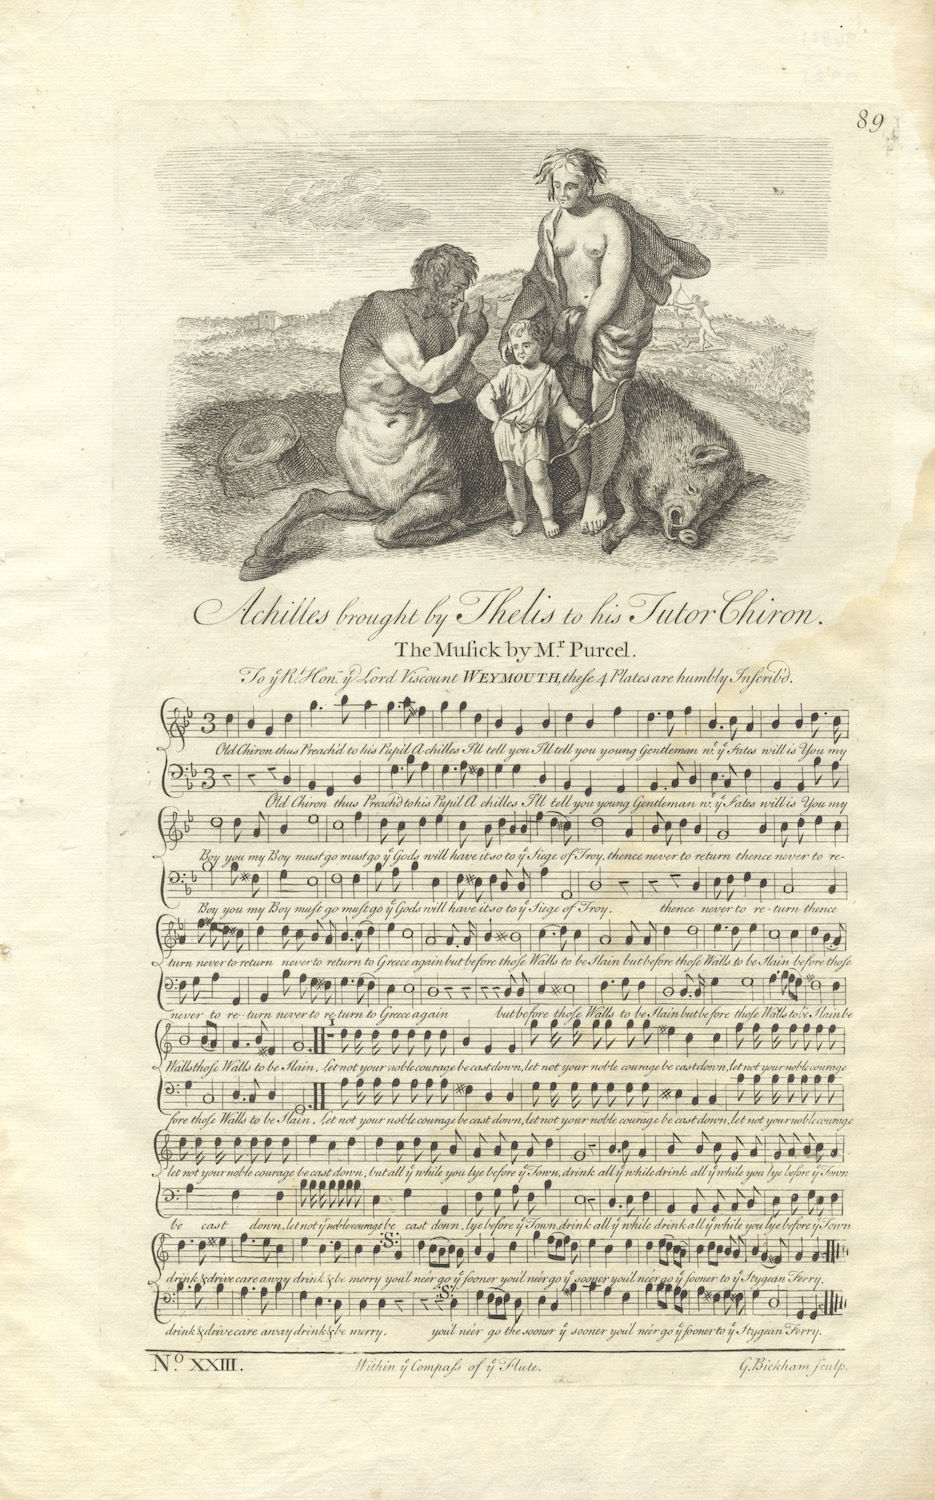 89
Achilles brought by Thelis to his Tutor Chiron.
The Musick by Mr. Purcel.
To ye Rt. Hon. ye Lord Viscount WEYMOUTH, these 4 Plates are humbly Inscrib'd.
3
Old Chiron thus Preach'd to his Pupil A chilles I'll tell you I'll tell you young Gentleman wt. ye Fates will is You my
3
Old Chiron thus Preach'd to his Pupil A chilles I'll tell you young Gentleman wt. ye Fates will is You my
Boy you my Boy must go must go ye Gods will have it so to ye Siege of Troy, thence never to return thence never to re-
Boy you my Boy must go must go ye Gods will have it so to ye Siege of Troy. thence never to re-turn thence
turn never to return never to return to Greece again but before those Walls to be slain but before those Walls to be slain before those
never to re-turn never to re-turn to Greece again but before those Walls to be slain but before those Walls to be slain be
Walls those Walls to be slain. Let not your noble courage be cast down, let not your noble courage be cast down, let not your noble courage
fore those Walls to be slain. Let not your noble courage be cast down, let not your noble courage be cast down, let not your noble courage
let not your noble courage be cast down, but all ye while you lye before ye Town, drink all ye while drink all ye while you lye before ye Town
be cast down, let not yr noble courage be cast down. lye before ye Town, drink all ye while drink all ye while you lye before ye Town
:S:
drink & drive care away drink & be merry you'l neer go ye sooner you'l neer go ye sooner you'l neer go ye sooner to ye Stygean Ferry.
:S:
drink & drive care away drink & be merry. you'l neer go the sooner ye sooner you'l neer go ye sooner to ye Stygean Ferry.
No. XXIII. Within ye Compass of ye Flute. G. Bickham sculp.